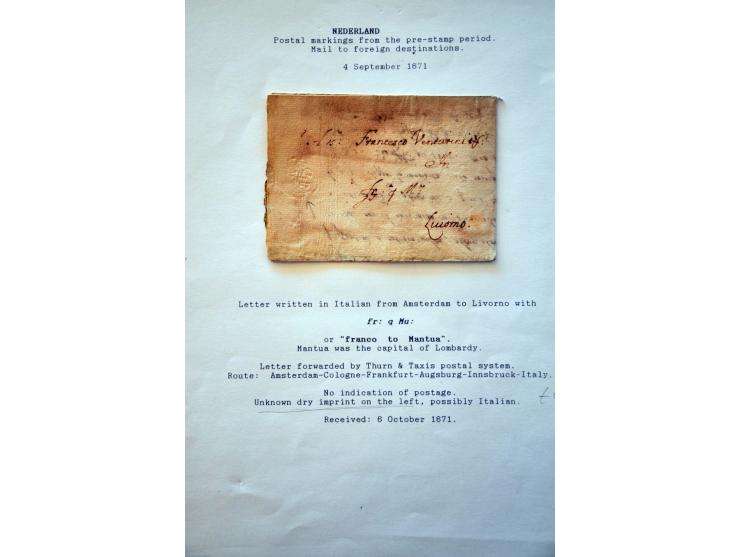 NEDERLAND
Postal markings from the pre-stamp period.
Mail to foreign destinations.
4 September 1671
Francesco Venturini
Livorno.
Letter written in Italian from Amsterdam to Livorno with
fr: q Mu:
or "franco to Mantua".
Mantua was the capital of Lombardy.
Letter forwarded by Thurn & Taxis postal system.
Route: Amsterdam-Cologne-Frankfurt-Augsburg-Innsbruck-Italy.
No indication of postage.
Unknown dry imprint on the left, possibly Italian.
Received: 6 October 1671.